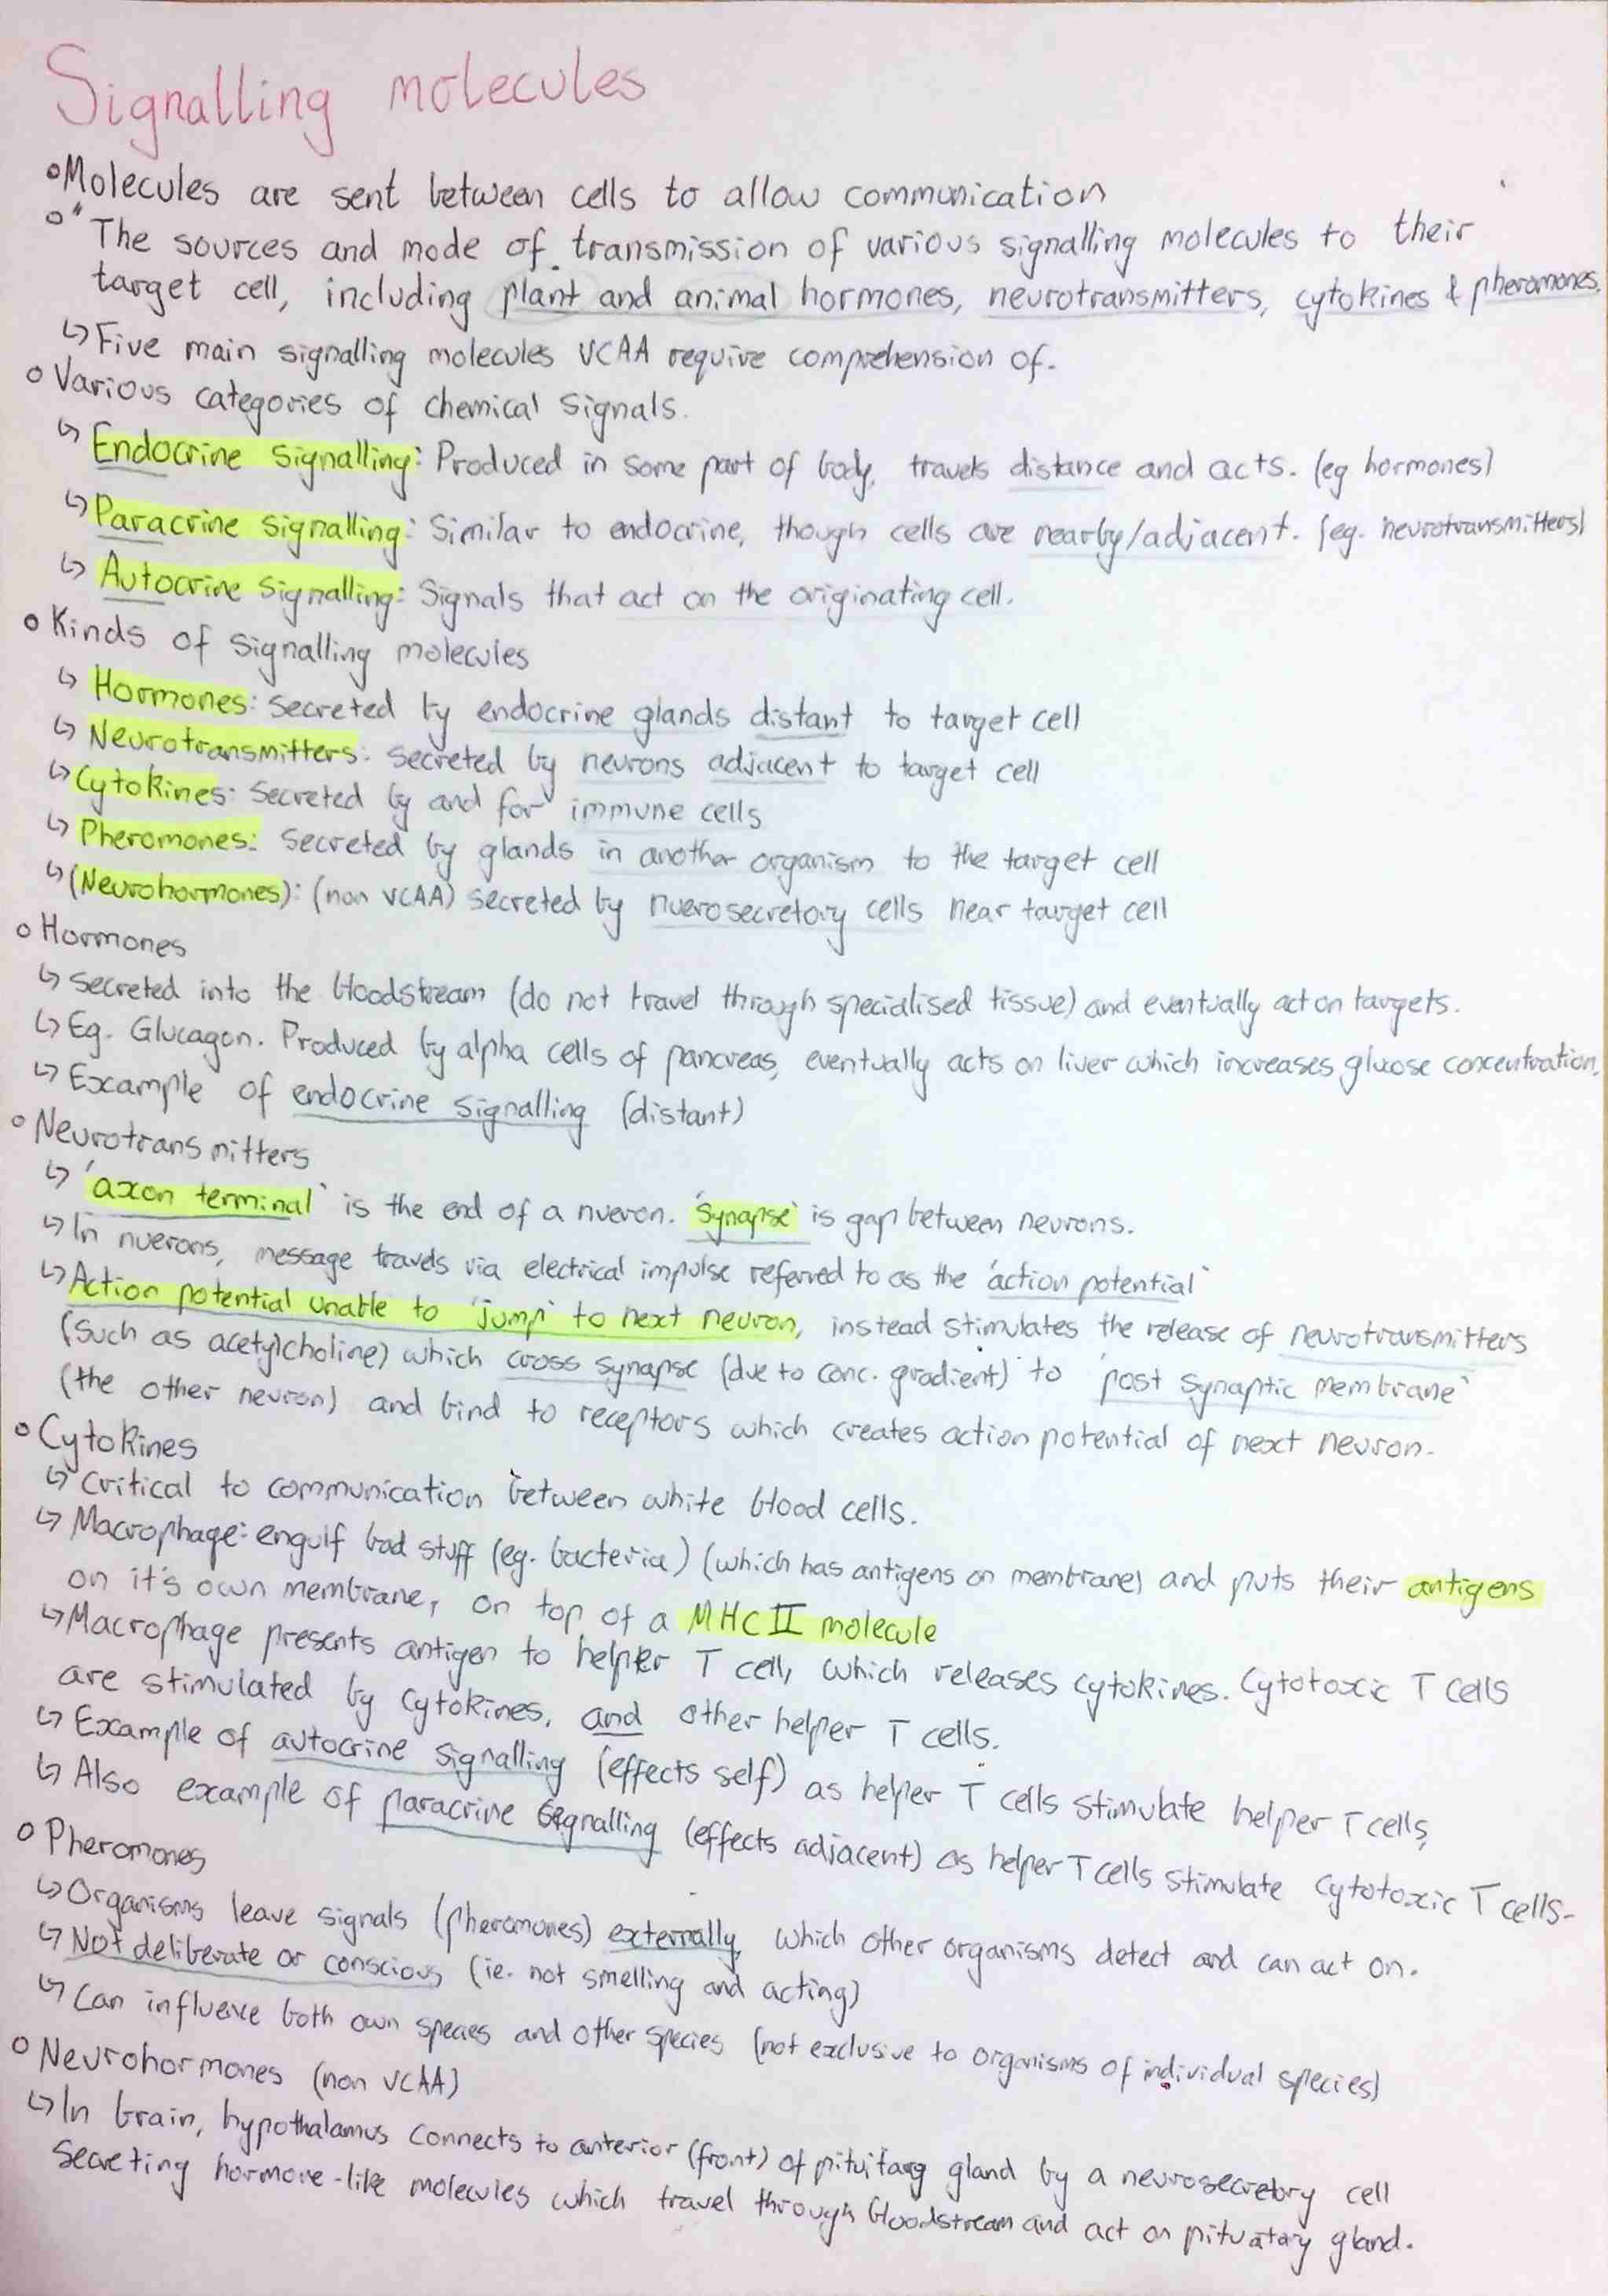 Signalling molecules
Molecules are sent between cells to allow communication
"The sources and mode of transmission of various signalling molecules to their
target cell, including plant and animal hormones, neurotransmitters, cytokines & pheromones.
↳ Five main signalling molecules VCAA require comprehension of.
Various categories of chemical signals.
↳ Endocrine signalling: Produced in some part of body, travels distance and acts. (eg hormones)
↳ Paracrine signalling: Similar to endocrine, though cells are nearby/adjacent. (eg. neurotransmitters)
↳ Autocrine signalling: Signals that act on the originating cell.
Kinds of signalling molecules
↳ Hormones: secreted by endocrine glands distant to target cell
↳ Neurotransmitters: secreted by neurons adjacent to target cell
↳ Cytokines: Secreted by and for immune cells
↳ Pheromones: Secreted by glands in another organism to the target cell
↳ (Neurohormones): (non VCAA) secreted by nuerosecretory cells near target cell
Hormones
↳ secreted into the bloodstream (do not travel through specialised tissue) and eventually act on targets.
↳ Eg. Glucagon. Produced by alpha cells of pancreas, eventually acts on liver which increases glucose concentration.
↳ Example of endocrine signalling (distant)
Neurotransmitters
↳ 'axon terminal' is the end of a nueron. 'synapse' is gap between neurons.
↳ In nuerons, message travels via electrical impulse referred to as the 'action potential'
↳ Action potential unable to 'jump' to next neuron, instead stimulates the release of neurotransmitters
(such as acetylcholine) which cross synapse (due to conc. gradient) to 'post synaptic membrane'
(the other neuron) and bind to receptors which creates action potential of next neuron.
Cytokines
↳ critical to communication between white blood cells.
↳ Macrophage: engulf bad stuff (eg. bacteria) (which has antigens on membrane) and puts their antigens
on it's own membrane, on top of a MHC II molecule
↳ Macrophage presents antigen to helper T cell, which releases cytokines. Cytotoxic T cells
are stimulated by cytokines, and other helper T cells.
↳ Example of autocrine signalling (effects self) as helper T cells stimulate helper T cells,
↳ Also example of paracrine signalling (effects adjacent) as helper T cells stimulate cytotoxic T cells.
Pheromones
↳ Organisms leave signals (pheromones) externally, which other organisms detect and can act on.
↳ Not deliberate or conscious (ie. not smelling and acting)
↳ Can influence both own species and other species (not exclusive to organisms of individual species)
Neurohormones (non VCAA)
↳ In brain, hypothalamus connects to anterior (front) of pituitary gland by a neurosecretory cell
secreting hormone-like molecules which travel through bloodstream and act on pituatary gland.